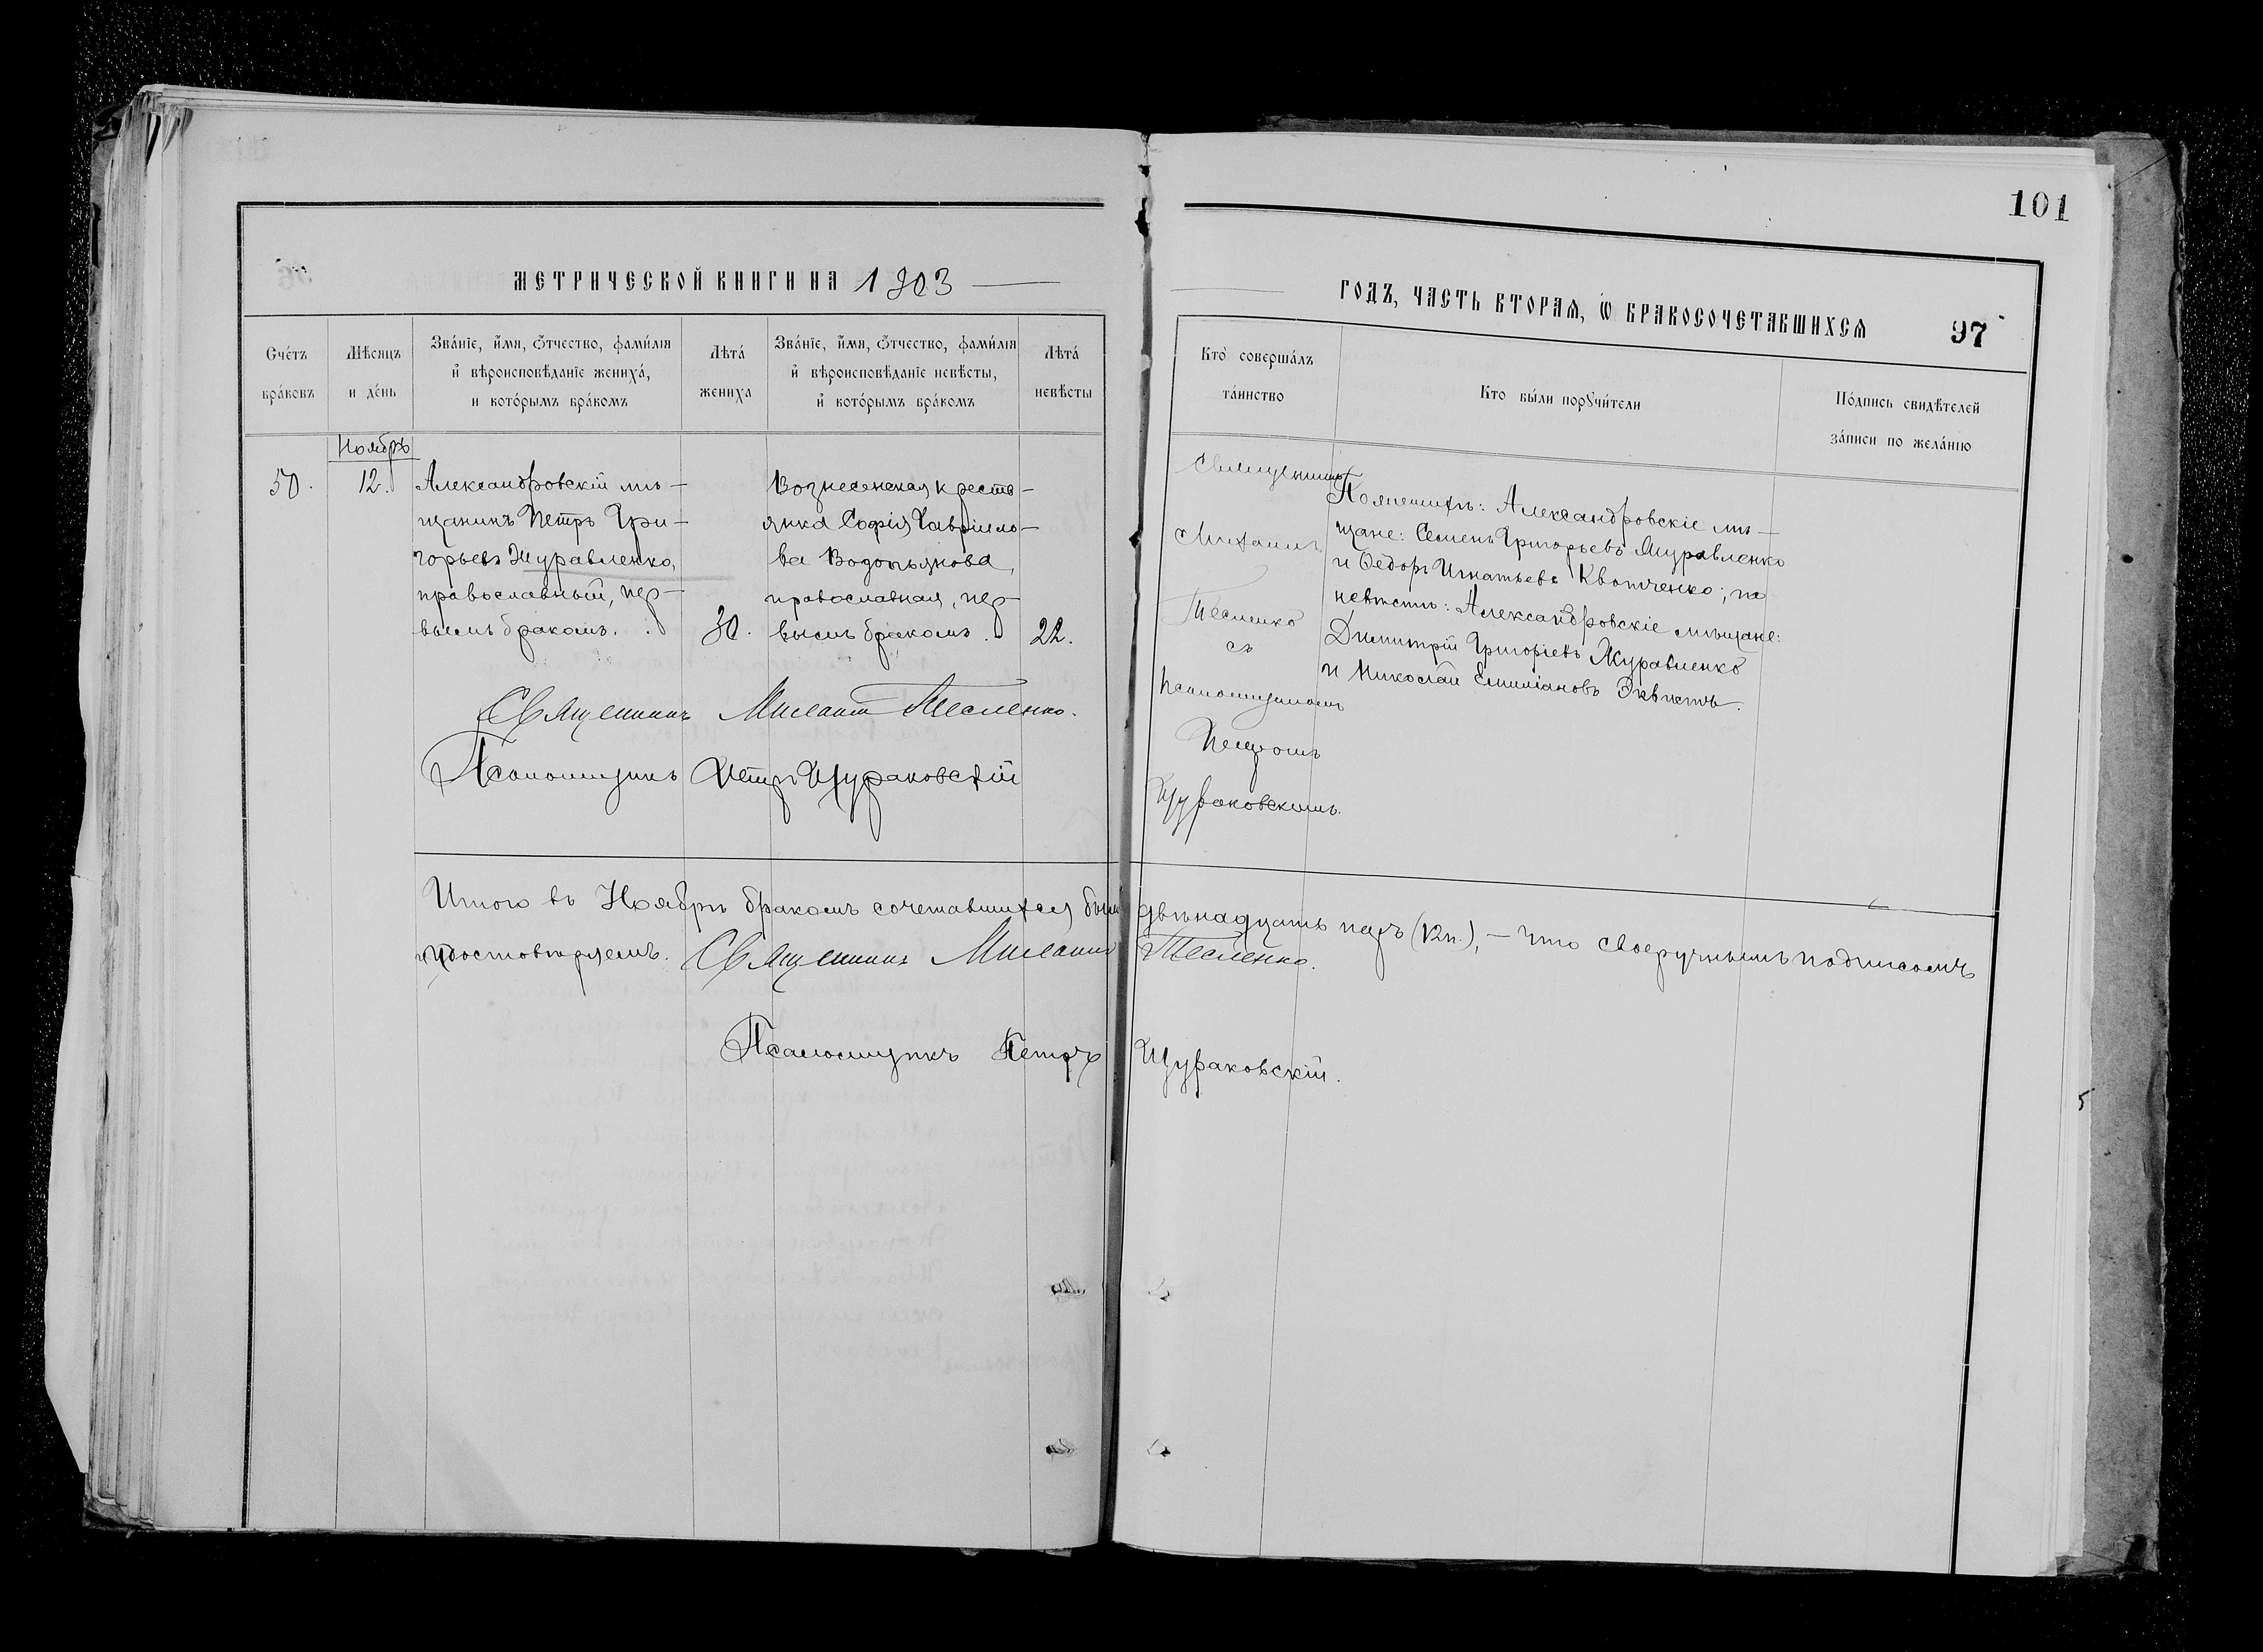 101
МЕТРИЧЕСКОЙ КНИГИ НА 1903
ГОДЪ, ЧАСТЬ ВТОРАЯ, Ѡ БРАКОСОЧЕТАВШИХСЯ
97
Сче́тъ
бра́ковъ
Мѣсяцъ
и де́нь
Зва́нїе, и҆́мя, ѻ҆́тчество, фами́лїя
и҆ вѣроисповѣ́данїе жениха́,
и кото́рымъ бра́комъ
Лѣта́
жениха
Зва́нїе, и҆́мя, ѻ҆́тчество, фами́лїя
и҆ вѣроисповѣ́данїе невѣ́сты,
и҆ кото́рымъ бра́комъ
Лѣта́
невѣсты
Кто̀ соверша́лъ
та́инство
Кто бы́ли порꙋчи́тели
По́дпись свидѣ́телей
за́писи по жела́нїю
Ноябрь
50.
12.
Александровскій мѣ-
щанинъ Петръ Гри-
горьевъ Журавленко,
православный, пер-
вымъ бракомъ.
30.
Вознесенская кресть-
янка Софія Гавріило-
ва Водопьянова,
православная, пер-
вымъ бракомъ.
22.
Священникъ
Михаилъ
Тесленко
съ
псаломщикомъ
Петромъ
Щураковскимъ.
По женихѣ: Александровскіе мѣ-
щане: Семенъ Григорьевъ Журавленко
и Ѳедоръ Игнатьевъ Квотченко; по
невѣстѣ: Александровскіе мѣщане:
Димитрій Григоріевъ Журавленко
и Николай Емиліановъ Эквистъ.
Священникъ Михаилъ Тесленко.
Псаломщикъ Петръ Щураковскій
Итого въ Ноябрѣ бракомъ сочетавшихся было двѣнадцать паръ (12 п.), – что своеручнымъ подписомъ
удостовѣряемъ. Священникъ Михаилъ Тесленко.
Псаломщикъ Петръ Щураковскій.